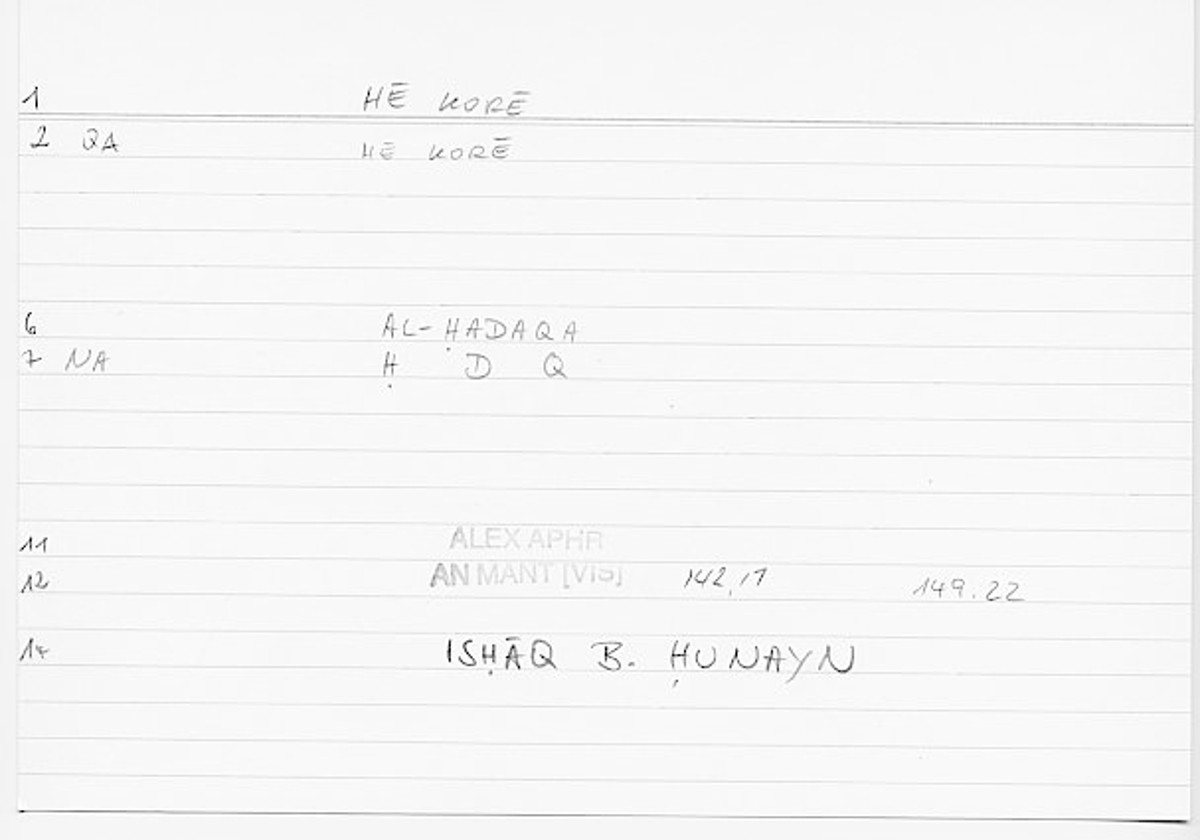 1 HĒ KORĒ
2 QA HE KORĒ
6 AL-ḤADAQA
7 NA Ḥ D Q
11 ALEX APHR
12 AN MANT [VIS] 142,17 149.22
14 ISḤĀQ B. ḤUNAYN